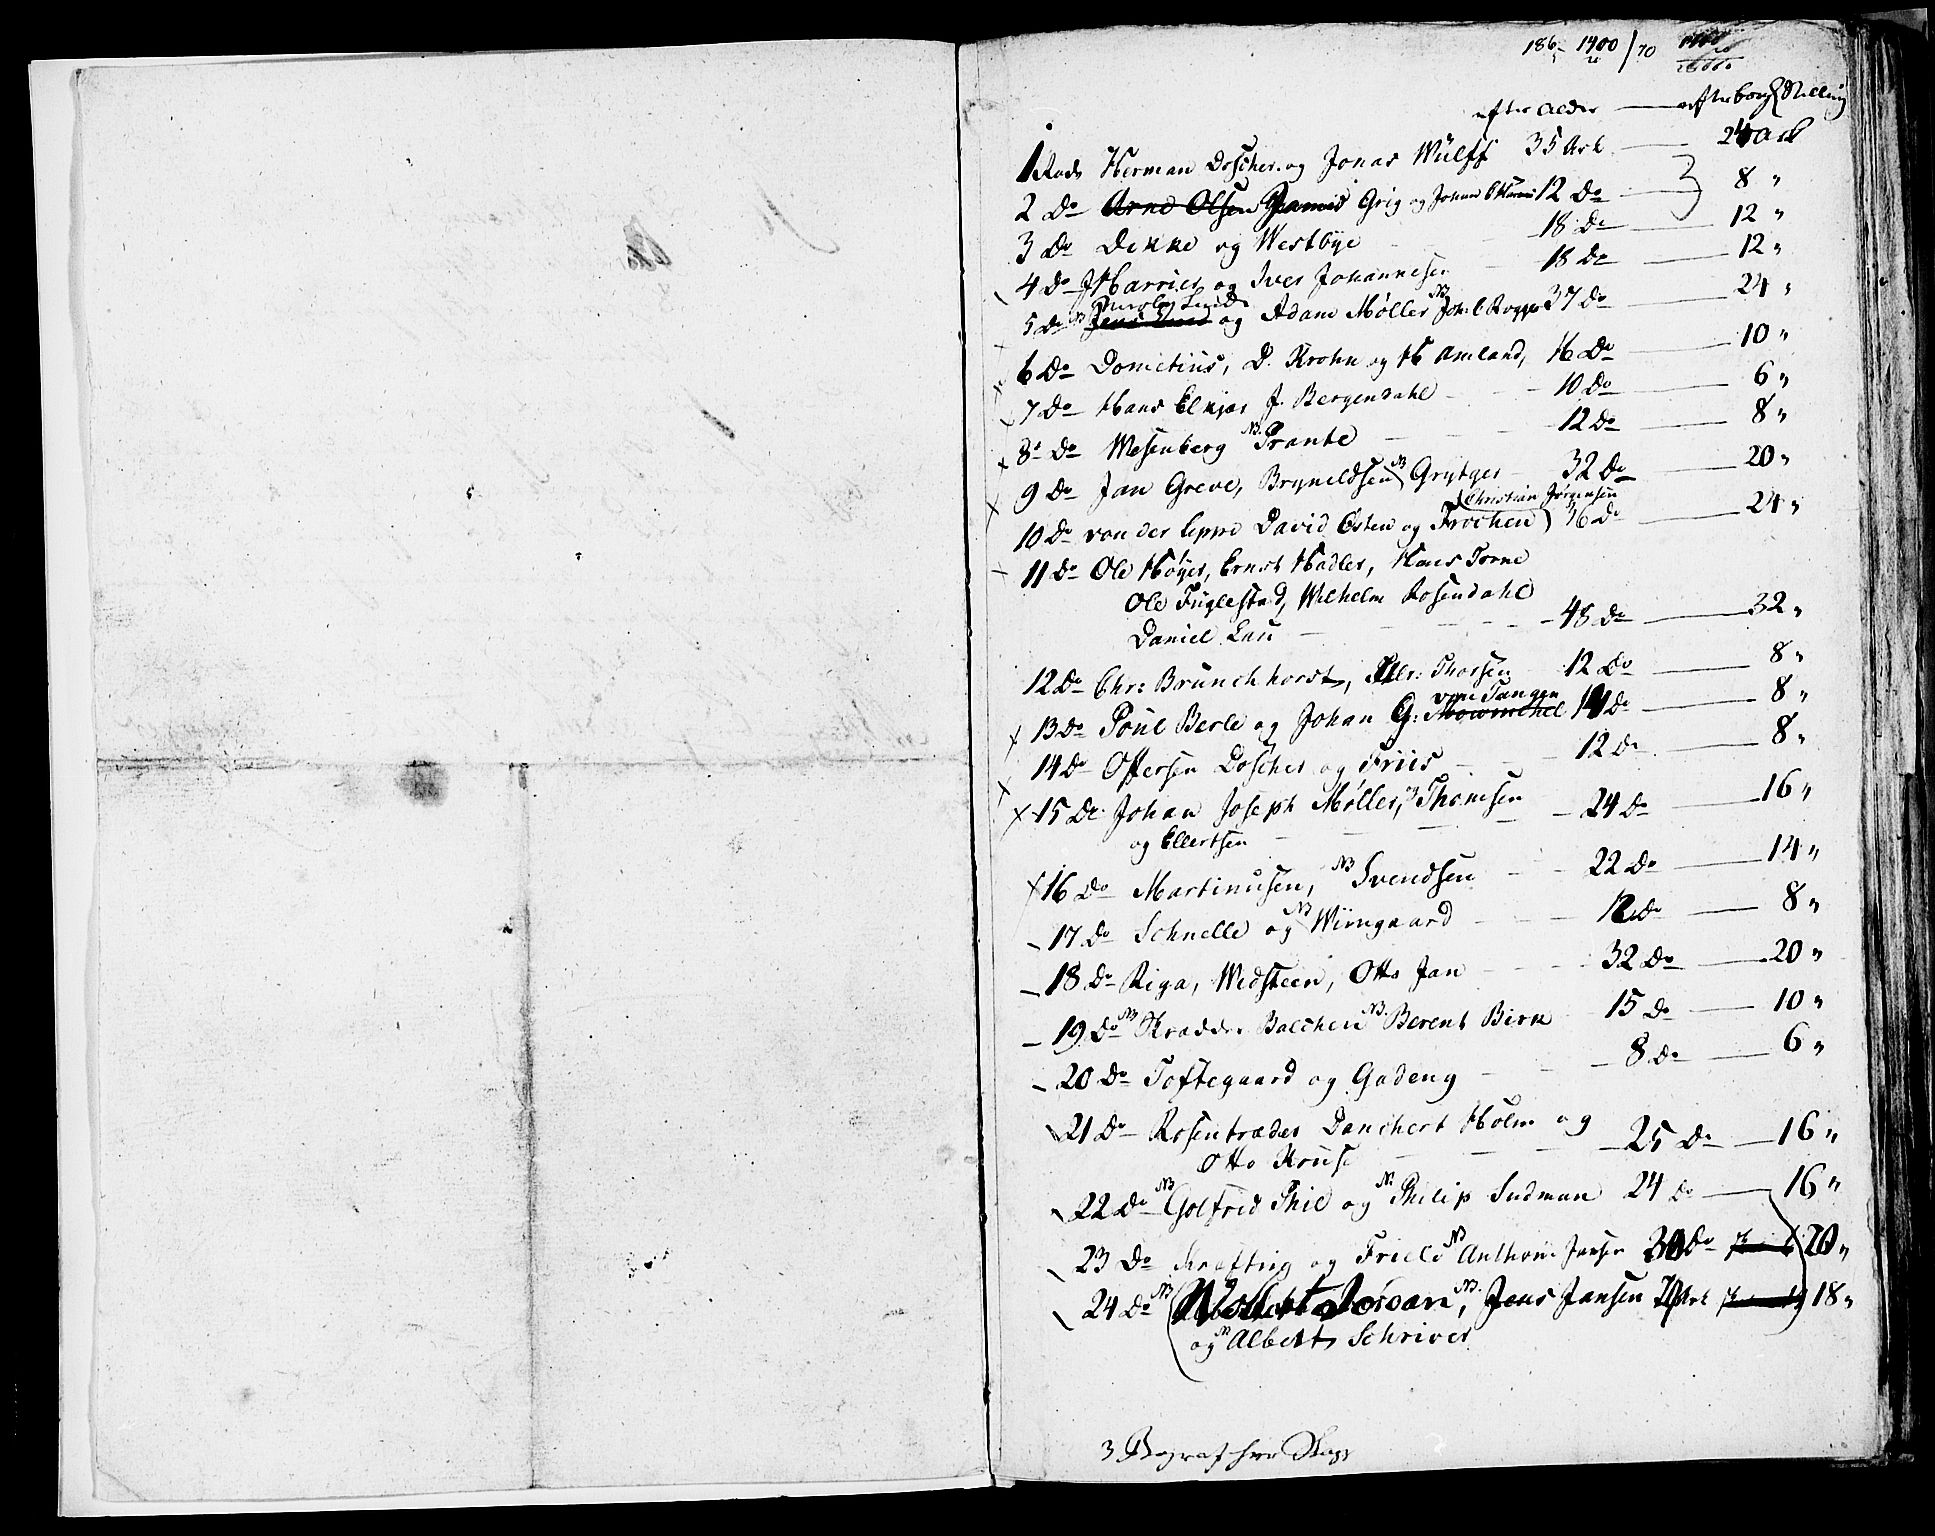 186 1400 / 70
efter Alder — efter
1 Rode Herman Doscher og Jonas Wülff 35 Ark — 24 Ark
2 Do Arne Olsen Grig og Johan 12 Do — 8 "
3 Do Dekke og Westbye 18 Do — 12 "
4 Do J Harries og Iver Johannesen 18 Do — 12 "
5 Do og Adam Møller NB Joh: C Rogge 37 Do — 24 "
6 Do Dometius, D. Krohn og H Amland, 16 Do — 10 "
7 Do Hans Elkjær J. Bergendahl 10 Do — 6 "
8 Do Wesenberg NB Prante 12 Do — 8 "
9 Do Jan Greve, Bryneldsen NB Grytger 32 Do — 20 "
Christian Jørgensen
10 Do von der Lippe David Esten og Frochen 36 Do — 24 "
11 Do Ole Høyer, Ernst Hadler, Hans Torne
Ole Fuglestad, Wilhelm Rosendahl
Daniel Lau 48 Do — 32 "
12 Do Chr: Brünchhorst, Thorsen 12 Do — 8 "
von Tangen
13 Do Poul Berle og Johan G: Do — 8 "
14 Do Offersen Doscher og Friis 12 Do — 8 "
15 Do Johan Joseph Møller, NB Thomsen
og Ellertsen 24 Do — 16 "
16 Do Martinusen, NB Svendsen 22 Do — 14 "
17 Do Schnelle og NB Wiingaard 12 Do — 8 "
18 Do Riga, Wedsteen, Otto Jan 32 Do — 20 "
19 Do NB Balchen NB Berent Birk 15 Do — 10 "
20 Do Toftegaard og Gadeng 8 Do — 6 "
21 Do Rosentræder Danchert Holm og
Otto Kruse 25 Do — 16 "
22 Do NB Golfrid Phil og NB Philip Sudman 24 Do — 16 "
23 Do Kraftrig og Friele NB Anthoni Jansen 30 Do 20 "
24 Do NB Wollert Jordan, NB Jens Jansen Ark 18 "
og NB Albert Schriver
3